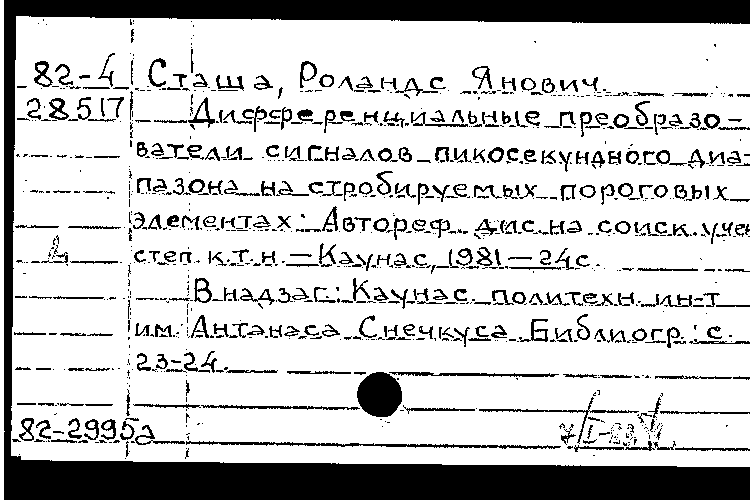 82-4 Сташа, Роландс Янович.
28517 Дифференциальные преобразо-
ватели сигналов пикосекундного диа-
пазона на стробируемых пороговых
элементах: Автореф. дис. на соиск. учен
степ. к.т.н. — Каунас, 1981 — 24с.
В надзаг.: Каунас. политехн. ин-т
им. Антанаса Снечкуса. Библиогр.: с.
23-24.
82-2995а